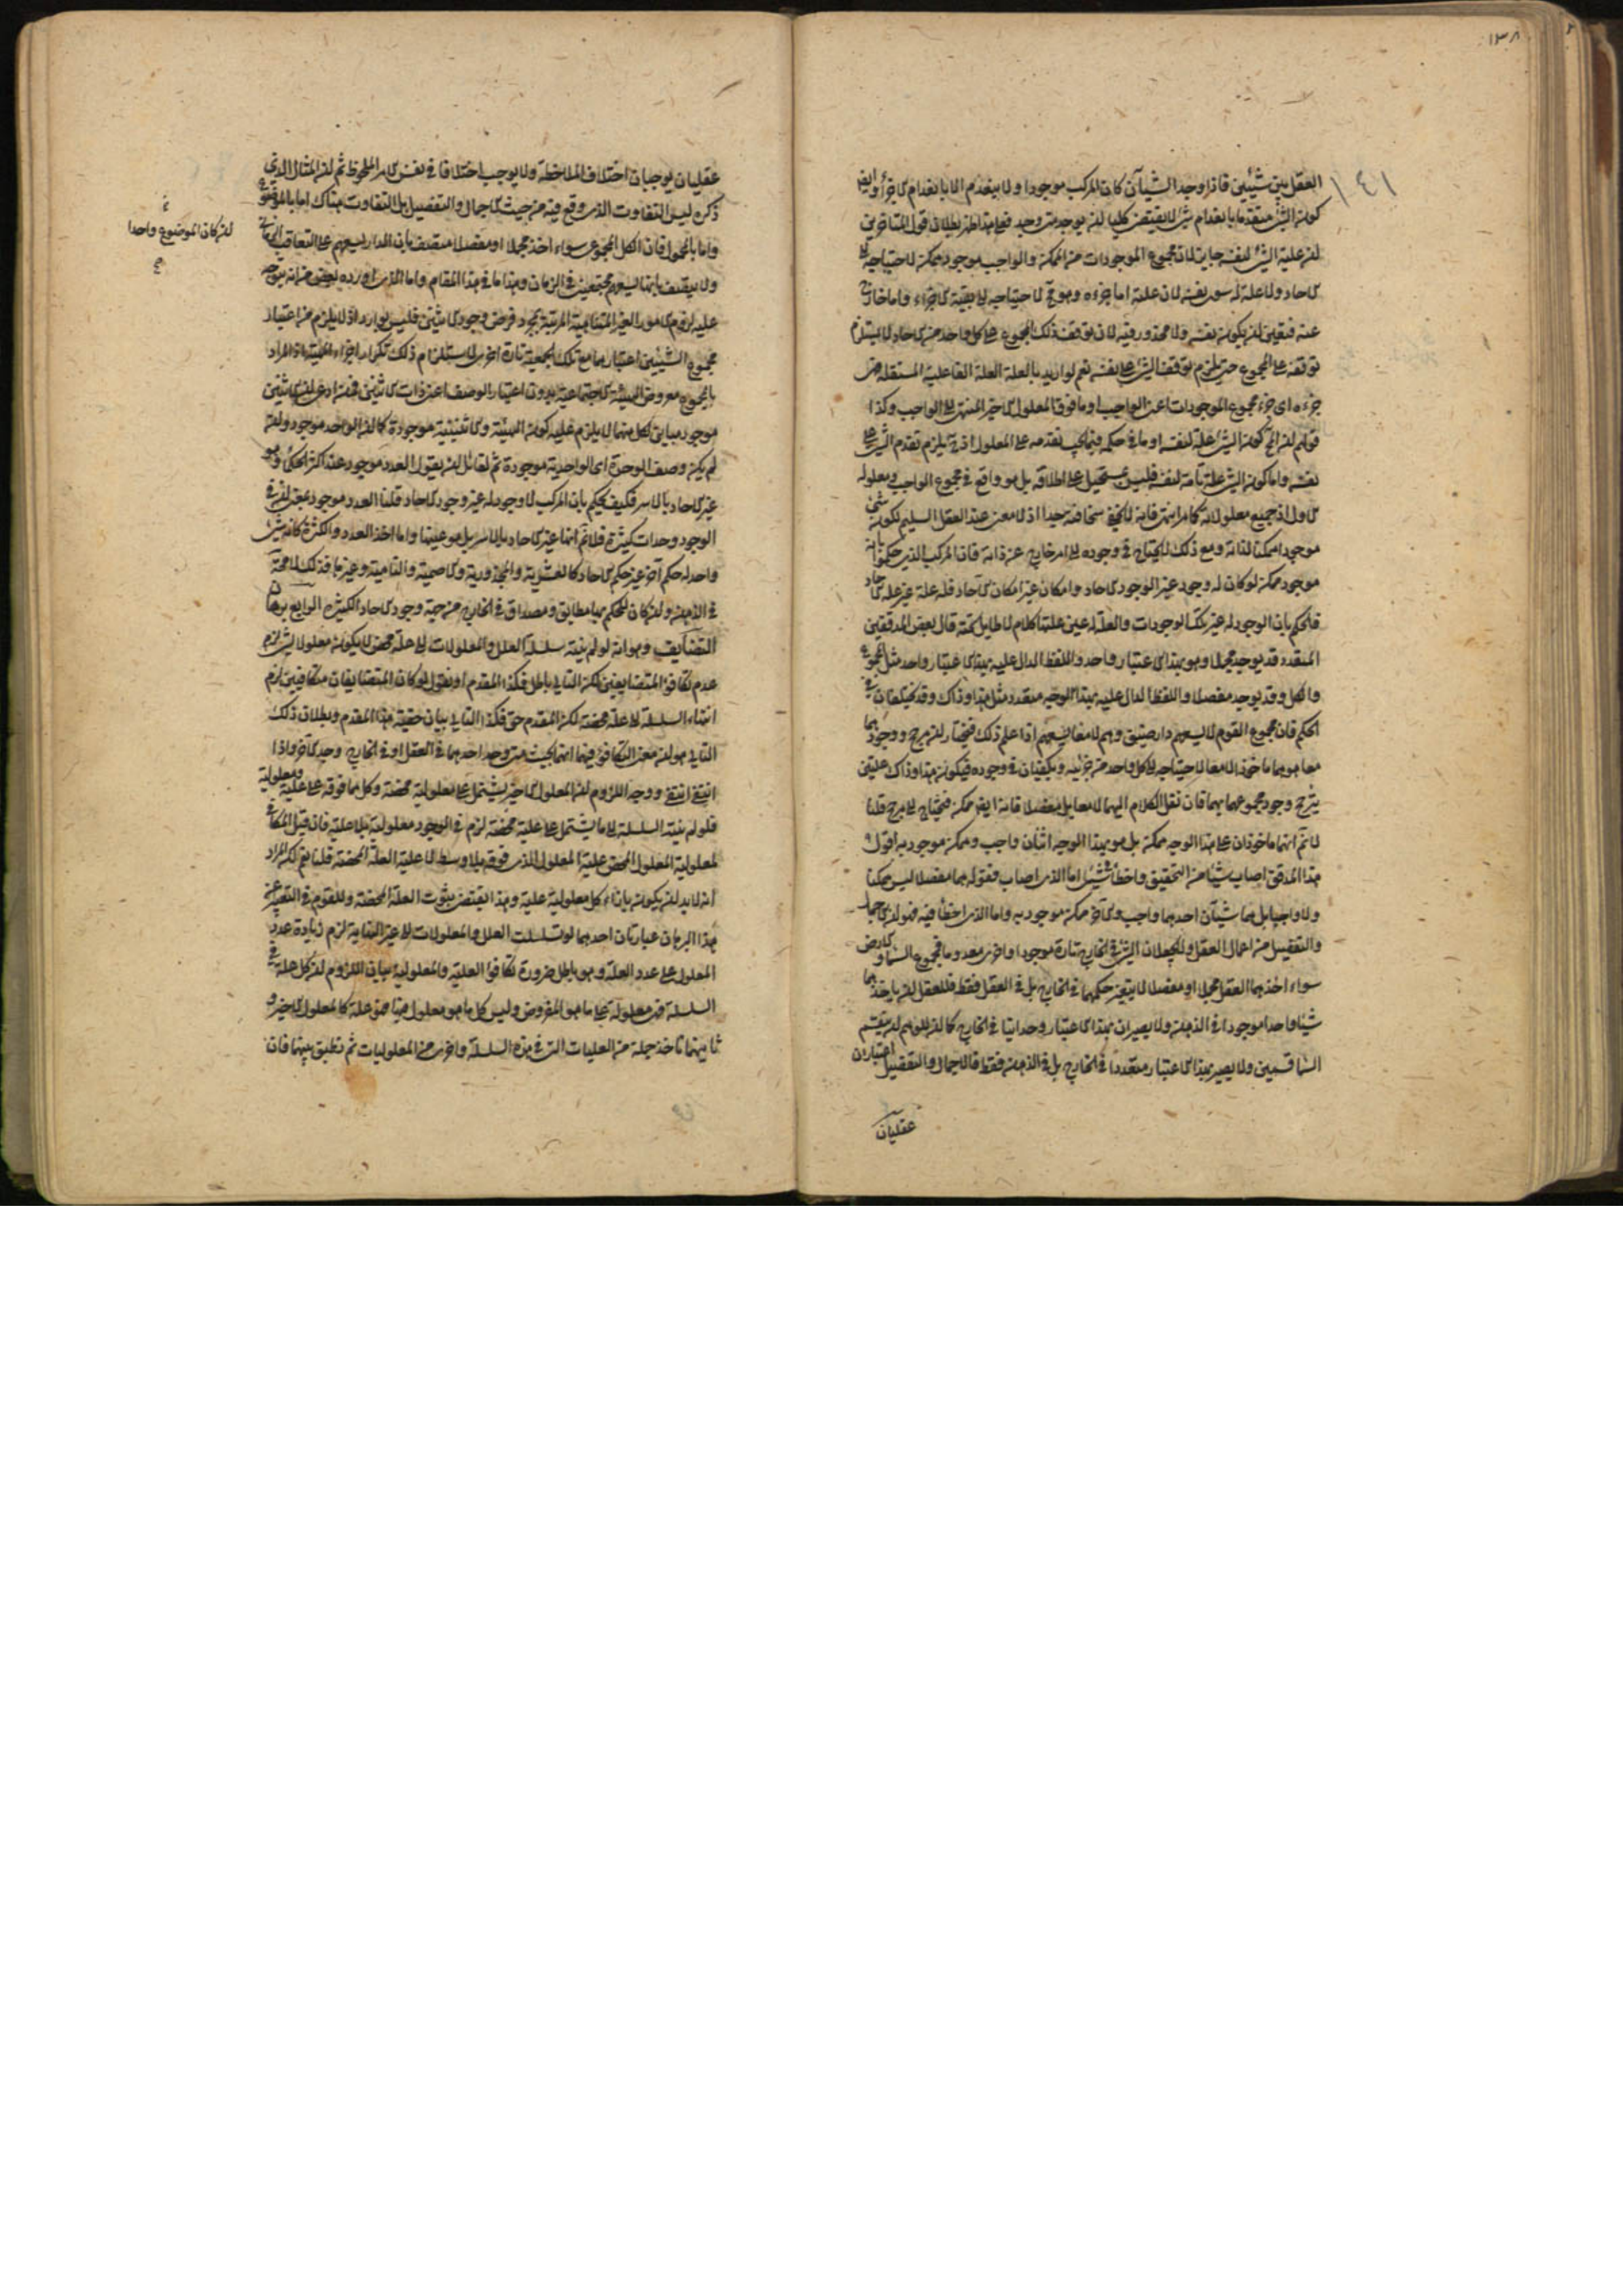 ١٣٨
١٤١
العقل بين شيئين فاذا وجد الشيئان كان المركب موجودا ولا ينعدم الا بانعدام الاجزاء وايضا
كون الشئ منعدما بانعدام شئ لا يقتضى كليا ان يوجد متى وجد فبهذا ظهر بطلان قول المتأخرين
ان علية الشئ لنفسه جايز لان مجموع الموجودات من الممكن والواجب موجود ممكن لاحتياجه الى
الاحاد ولا علة له سوى نفسه لان علته اما جزءه وهو لاحتياجه الى بقية الاجزاء واما خارج
عنه فبقى ان يكون نفسه ولا محذور فيه لان توقف ذلك المجموع على كل واحد من الاحاد لا يستلزم
توقفه على المجموع حتى يلزم توقف الشئ على نفسه نعم لو اريد بالعلة العلة الفاعلية المستقلة فهى
جزءه اى جزء مجموع الموجودات اعنى الواجب او ما فوق المعلول الاخير المنتهى الى الواجب وكذا
قولهم كون الشئ علة لنفسه او ما فى حكمه فيما يجب تقدمه على المعلول اذ يلزم تقدم الشئ على
نفسه واما كون الشئ علة تامة لنفسه فليس بمستحيل على اطلاقه بل هو واقع فى مجموع الواجب ومعلوله
الاول اذ جميع معلولاته كما مر انتهى فانه لا يخفى سخافته جدا اذ لا معنى عند العقل السليم لكون شئ
موجودا ممكنا لذاته ومع ذلك لا يحتاج فى وجوده الى امر خارج عن ذاته فان المركب الذى حكموا بانه
موجود ممكن لو كان له وجود غير الوجود الاحاد وامكان غير امكان الاحاد فله علة غير علة الاحاد
فالحكم بان الوجود له غير تلك الوجودات والعلة له عين علتها كلام لا طايل تحته قال بعض المدققين
المتعدد قد يوجد مجملا وهو بهذا الاعتبار واحد واللفظ الدال عليه بهذا الاعتبار واحد مثل المجموع
والكل وقد يوجد مفصلا واللفظ الدال عليه بهذا الوجه متعدد مثل هذا وذاك وقد يختلفان فى
الحكم فان مجموع القوم لا يسعهم دار ضيق وهم لا معا يسعهم اذا علم ذلك فنختار ان مرجح ووجودهما
معا هو هما ماخوذا لا معا لاحتياجه الى كل واحد من جزئيه ويكفيان فى وجوده فيكون هذا وذاك علتين
يترجح وجود مجموعهما بهما فان نقل الكلام اليهما لا معا بل مفصلا فانه ايضا ممكن فيحتاج الى مرجح قلنا
لا نم انهما ماخوذان على هذا الوجه ممكن بل هو بهذا الوجه اثنان واجب وممكن موجود به اقول
هذا المدقق اصاب شيئا من التحقيق واخطأ فى شئ اما الذى اصاب فقوله هما مفصلا ليس ممكنا
ولا واجبا بل هما شيئان احدهما واجب والاخر ممكن موجود به واما الذى اخطأ فيه فهو ان الاجمال
والتفصيل من اعمال العقل ولا يجعلان الشئ فى الخارج تارة موجودا واخرى معدوما فمجموع السماء والارض
سواء اخذهما العقل مجملا او مفصلا لا يتغير حكمهما فى الخارج بل فى العقل فقط فللعقل ان ياخذهما
شيئا واحدا موجودا فى الذهن ولا يصيران بهذا الاعتبار وحدانيا فى الخارج كما ان للوهم ان يقسم
السماء قسمين ولا يصير بهذا الاعتبار متعددا فى الخارج بل فى الذهن فقط فالاجمال والتفصيل اعتباران
عقليان
عقليان يوجبان اختلاف الملاحظة ولا يوجب اختلافا فى نفس الامر الملحوظ ثم ان المثال الذى
ذكره ليس التفاوت الذى وقع فيه من حيث الاجمال والتفصيل بل التفاوت هناك اما بالموضوع
واما بالمحمول فان الكل المجموع سواء اخذ مجملا او مفصلا متصف بان الدار يسعهم على التعاقب
ان كان الموضوع واحدا
ولا يتصف بانها يسعهم مجتمعين فى الزمان وهذا ما فى هذا المقام واما الذى اورده بعض من انه يتوجه
عليه لزوم الامور الغير المتناهية المرتبة بمجرد فرض وجود الاثنين فليس بوارد اذ لا يلزم من اعتبار
مجموع الشيئين اعتبارهما مع تلك الجمعية تارة اخرى لاستلزام ذلك تكرار اجزاء الهيئة اذ المراد
بالمجموع معروض الهيئة الاجتماعية بدون اعتبار الوصف اعنى ذات الاثنين فمن ادعى ان الاثنين
موجود مباين لكل منهما لا يلزم عليه كون الهيئة والاثنينية موجودة كما ان الواحد موجود وان
لم يكن وصف الوحدة اى الواحدية موجودة ثم لقائل ان يقول العدد موجود عند اكثر الحكماء وهو
غير الاحاد بالاسر فكيف يحكم بان المركب لا وجود له غير وجود الاحاد قلنا العدد موجود بمعنى ان فى
الوجود وحدات كثيرة فلا نم انها غير الاحاد بالاسر بل هو عينها واما اخذ العدد والكثرة كانه شئ
واحد له حكم اخر غير حكم الاحاد كالعشرية والمجذورية والاصمية والتامية وغيرها فذلك لا محة
فى الذهن وان كان للحكم بها مطابق ومصداق فى الخارج من جهة وجود الاحاد الكثيرة الرابع برهان
التضايف وهو انه لو لم ينته سلسلة العلل والمعلولات الى علة محض لا يكون معلولا لشئ لزم
عدم تكافؤ المتضايفين لكن التالى باطل فكذا المقدم او نقول لو كان المتضايفان متكافيين لزم
انتهاء السلسلة الى علة محضة لكن المقدم حق فكذا التالى بيان حقية هذا المقدم وبطلان ذلك
التالى هو ان معنى التكافؤ فيهما انهما بحيث متى وجد احدهما فى العقل او فى الخارج وجد الاخر واذا
انتفى انتفى ووجه اللزوم ان المعلول الاخير يشتمل على معلولية محضة وكل مما فوقه على علية ومعلولية
فلو لم ينته السلسلة الى ما يشتمل على علية محضة لزم فى الوجود معلولية بلا علية فان قيل المكافئ
لمعلولية المعلول المحض علية المعلول الذى فوقه بلا وسط لا علية العلة المحضة قلنا نعم لكن المراد
انه لا بد ان يكون بازاء كل معلولية علية وهذا يقتضى ثبوت العلة المحضة وللقوم فى التعبير عن
هذا البرهان عبارتان احدهما لو تسلسلت العلل والمعلولات الى غير النهاية لزم زيادة عدد
المعلول على عدد العلة وهو باطل ضرورة تكافؤ العلية والمعلولية بيان اللزوم ان كل علة فى
السلسلة فهى معلولة على ما هو المفروض وليس كل ما هو معلول فيها فهو علة كالمعلول الاخير و
ثانيهما تاخذ جملة من العليات التى فى هذه السلسلة واخرى من المعلوليات ثم نطبق بينهما فان